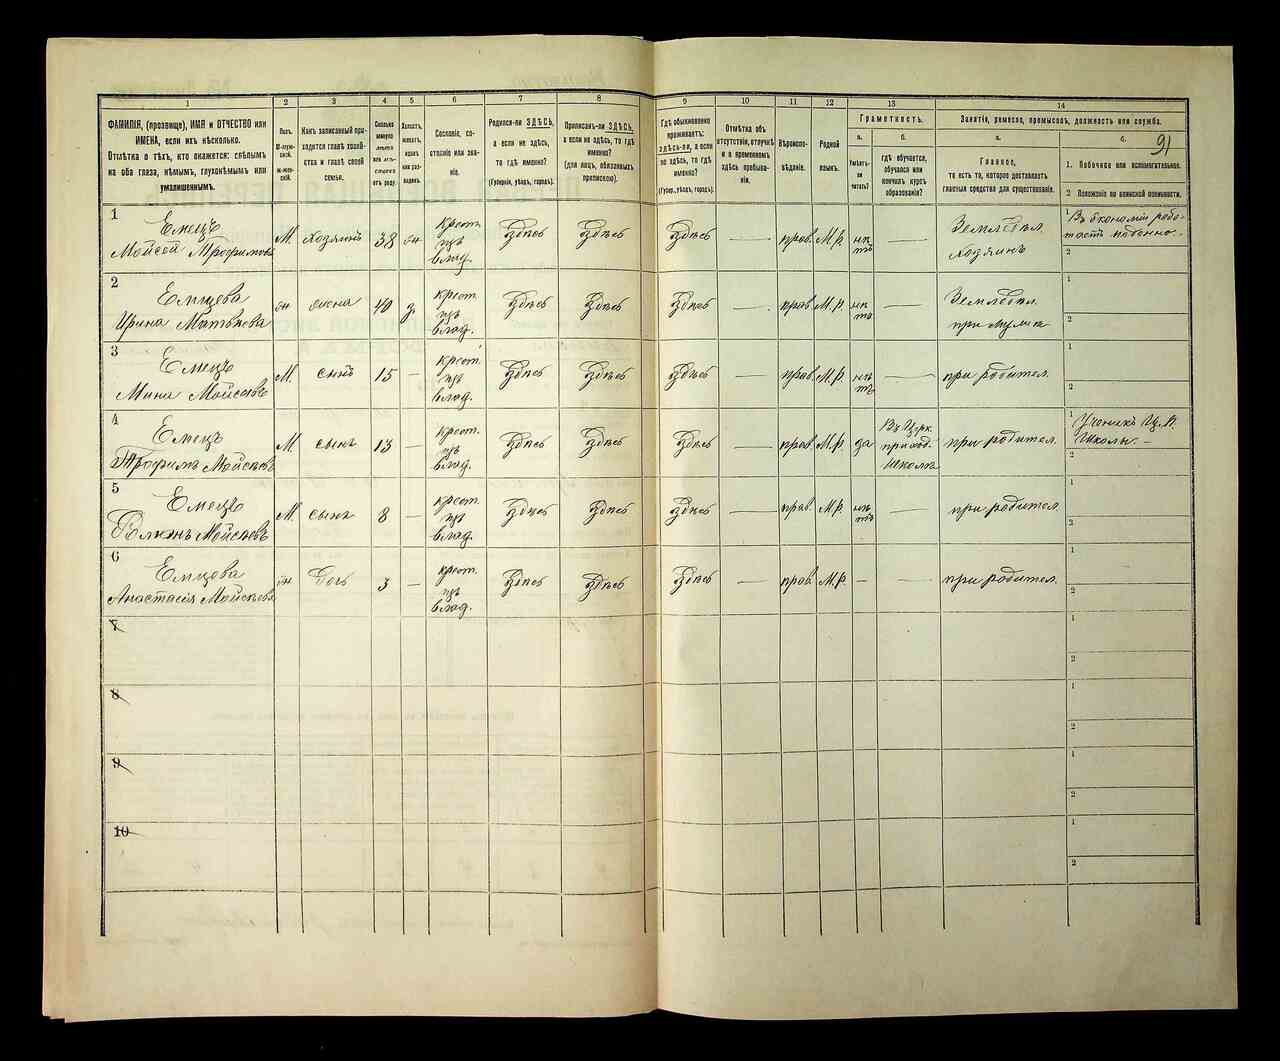 1
2
3
4
5
6
7
8
9
10
11
12
13
14
ФАМИЛІЯ, (прозвище), ИМЯ и ОТЧЕСТВО или
ИМЕНА, если ихъ нѣсколько.
Отмѣтка о тѣхъ, кто окажется: слѣпымъ
на оба глаза, нѣмымъ, глухонѣмымъ или
умалишеннымъ.
Полъ.
М-мужской.
Ж-женскій.
Какъ записанный приходится главѣ хозяйства и главѣ своей семьи.
Сколько минуло лѣтъ или мѣсяцевъ отъ роду.
Холостъ, женатъ, вдовъ или разведенъ.
Сословіе, состояніе или званіе.
Родился-ли ЗДѢСЬ,
а если не здѣсь,
то гдѣ именно?
(Губернія, уѣздъ, городъ).
Приписанъ-ли ЗДѢСЬ,
а если не здѣсь, то гдѣ
именно?
(для лицъ, обязанныхъ
припискою).
Гдѣ обыкновенно
проживаетъ:
здѣсь-ли, а если
не здѣсь, то гдѣ
именно?
(Губер., уѣздъ, городъ).
Отмѣтка объ
отсутствіи, отлучкѣ
и о временномъ
здѣсь пребываніи.
Вѣроисповѣданіе.
Родной
языкъ.
Грамотность.
а.
Умѣетъ-ли
читать?
б.
гдѣ обучается,
обучался или
кончилъ курсъ
образованія?
Занятіе, ремесло, промыселъ, должность или служба.
а.
Главное,
то есть то, которое доставляетъ
главныя средства для существованія.
б.
91
1. Побочное или вспомогательное.
2 Положеніе по воинской повинности.
1
Емецъ
Мойсей Трофимовъ
М.
хозяинъ
38
жн
крест.
изъ
влад.
Здѣсь
Здѣсь
Здѣсь
—
прав.
М.р.
нѣтъ
—
Земледѣл.
хозяинъ
1
Въ економіи работаетъ поденно.
2
2
Емцева
Ирина Матвѣева
жн
жена
40
з.
крест.
изъ
влад.
Здѣсь
Здѣсь
Здѣсь
—
прав.
М.р.
нѣтъ
—
Земледѣл.
при мужѣ
1
2
3
Емецъ
Мина Мойсеевъ
М.
сынъ
15
—
крест.
изъ
влад.
Здѣсь
Здѣсь
Здѣсь
—
прав.
М.р.
нѣтъ
—
при родител.
1
2
4
Емецъ
Трофимъ Мойсѣевъ
М.
сынъ
13
—
крест.
изъ
влад.
Здѣсь
Здѣсь
Здѣсь
—
прав.
М.р.
да
Въ Церк.
приход.
школѣ
при родител.
1
Ученикъ Ц. П.
Школы. —
2
5
Емецъ
Мойсѣевъ
М.
сынъ
8
—
крест.
изъ
влад.
Здѣсь
Здѣсь
Здѣсь
—
прав.
М.р.
нѣтъ
—
при родител.
1
2
6
Емцова
Анастасія Мойсѣева
жн.
Дочь
3
—
крест.
изъ
влад.
Здѣсь
Здѣсь
Здѣсь
—
прав.
М.р.
—
—
при родител.
1
2
7
1
2
8
1
2
9
1
2
10
1
2